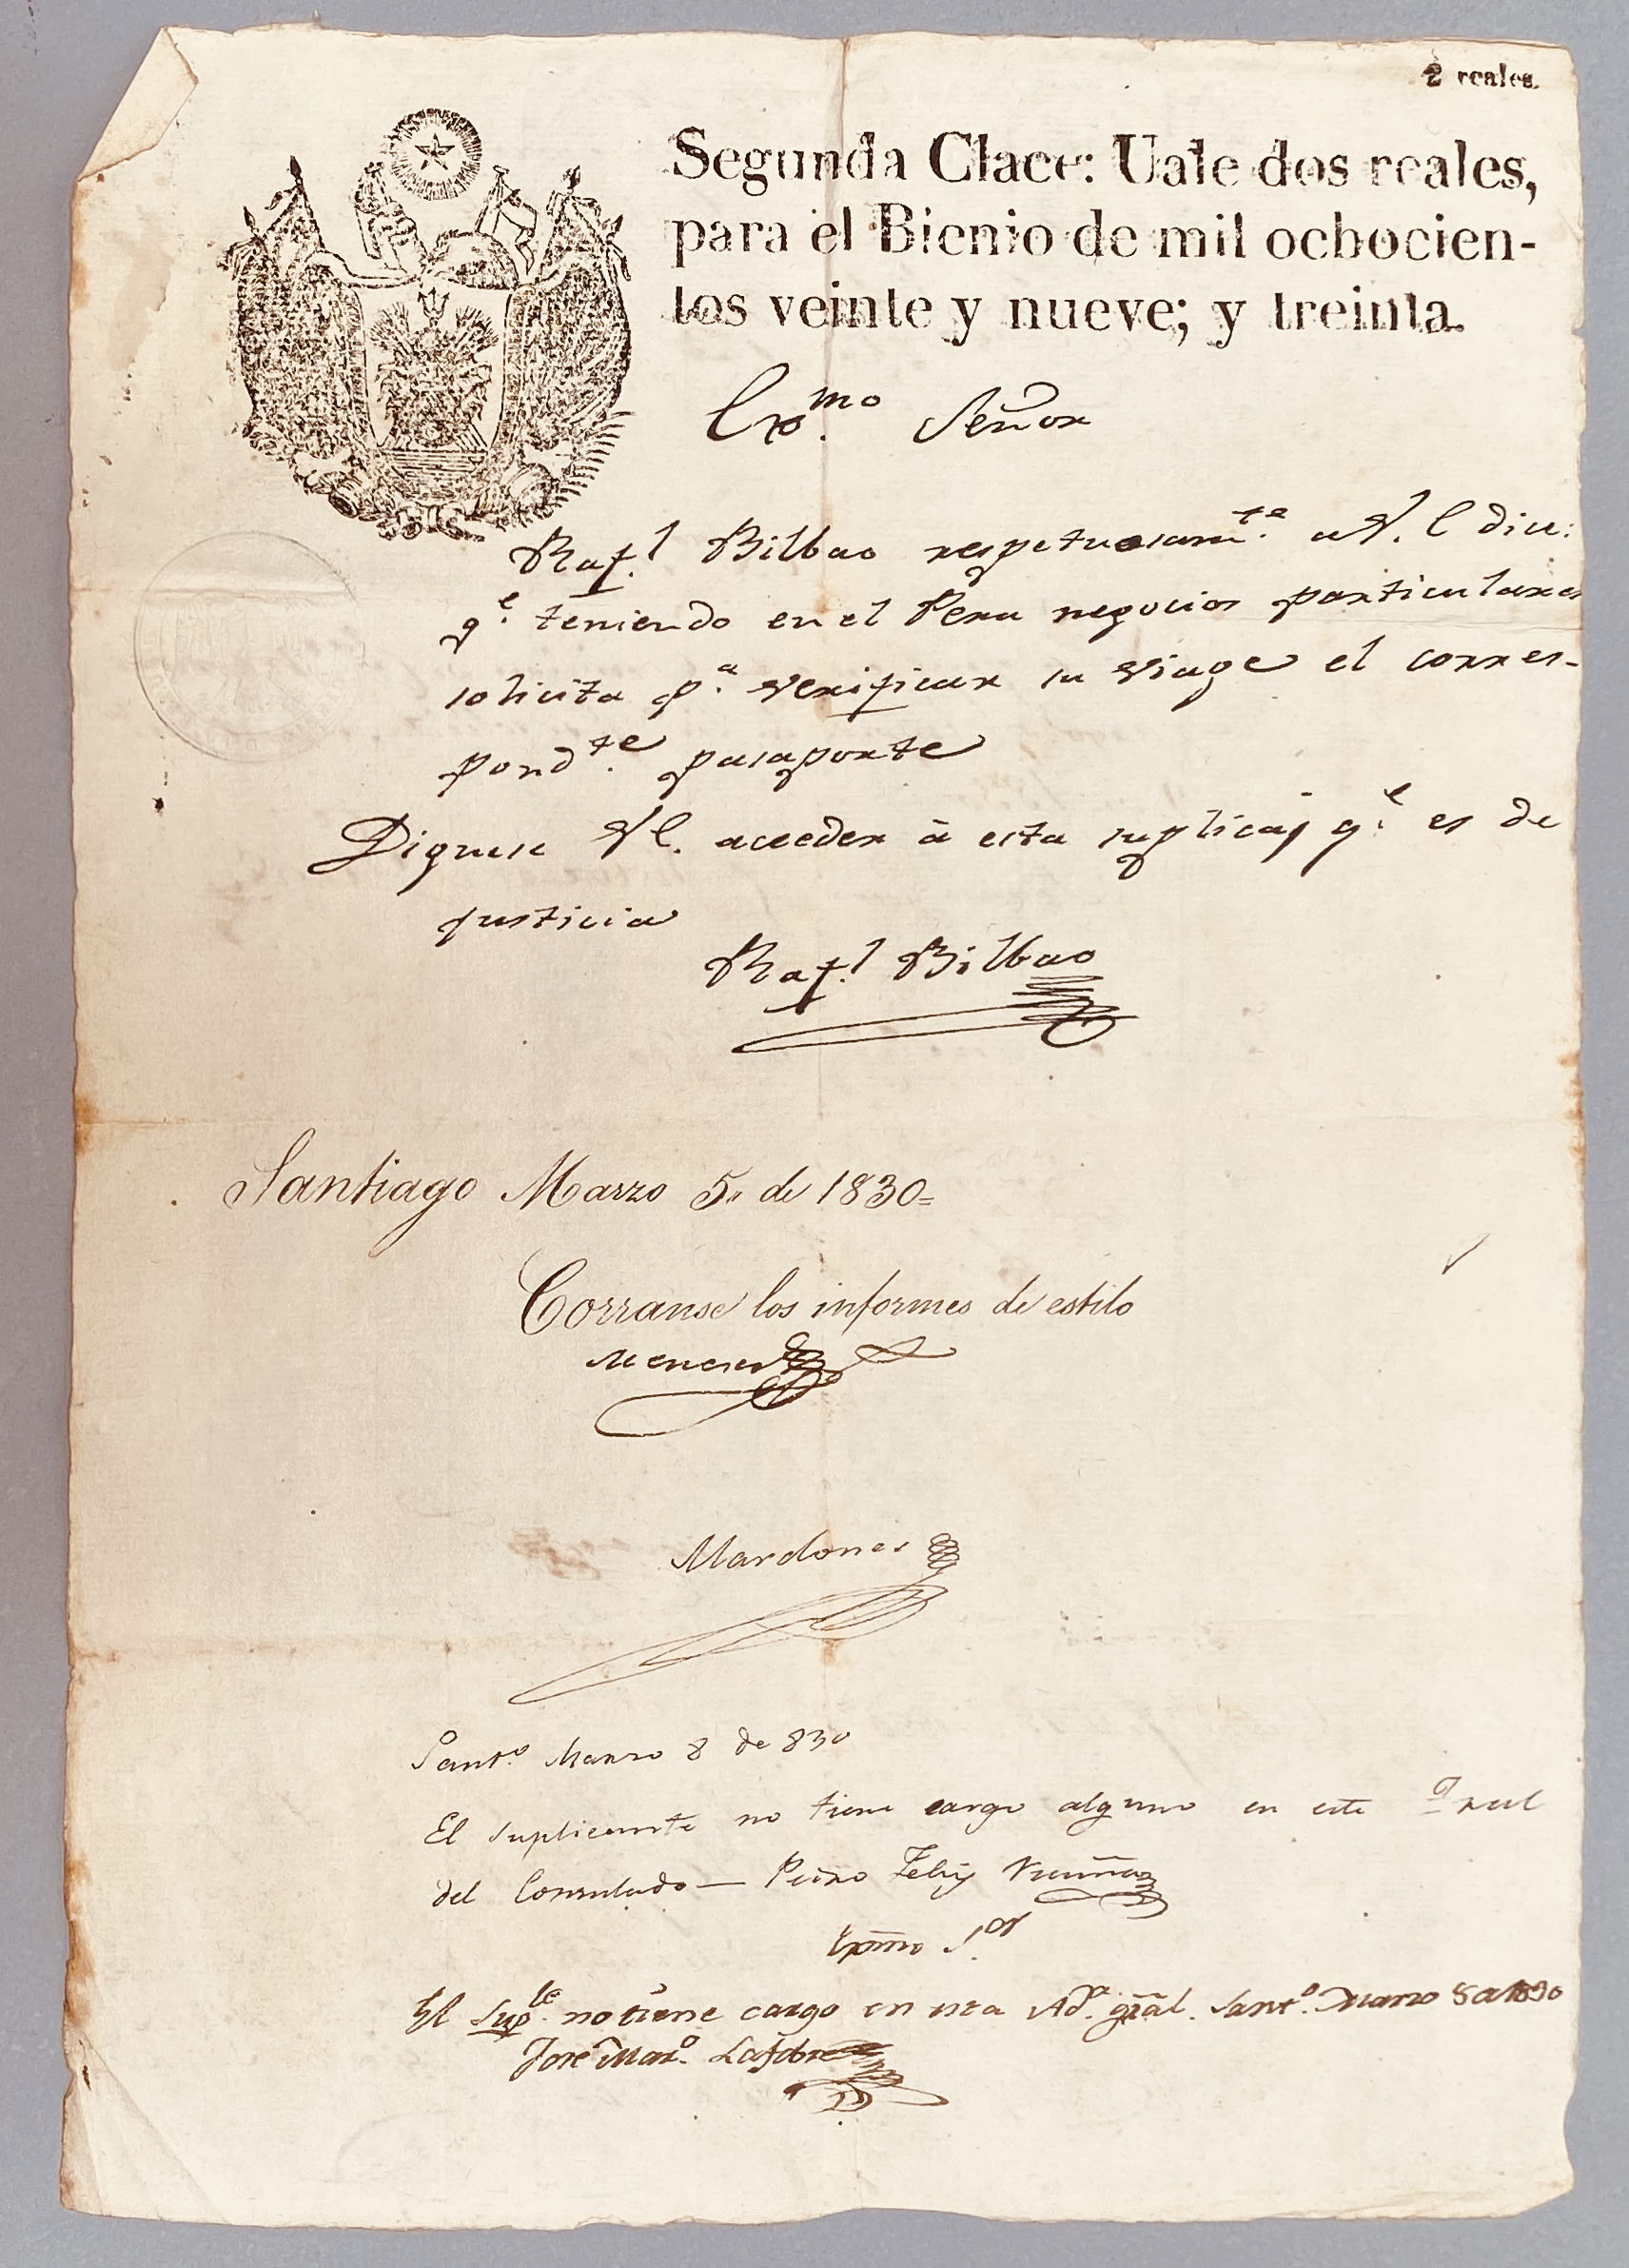 2 reales.
Segunda Clace: Uale dos reales,
para el Bienio de mil ochocien-
tos veinte y nueve; y treinta.
Exmo. Señor
Raf.l Bilbao respetuosam.te a V. E dice:
q.e teniendo en el Peru negocios particulares
solicita p.a verificar su viage el corres-
pond.te pasaporte
Dignese VE. acceder à esta suplica, q.e es de
justicia
Raf.l Bilbao
Santiago Marzo 5,, de 1830=
Corranse los informes de estilo
Meneses
Mardones
Sant.o Marzo 8 de 830
El suplicante no tiene cargo alguno en este
del Consulado — Pedro Felix Vicuña
Exmo S.or
El Sup.te no tiene cargo en esta Ad.n gral. Sant.o Marzo 8 de 1830
José Mar.o